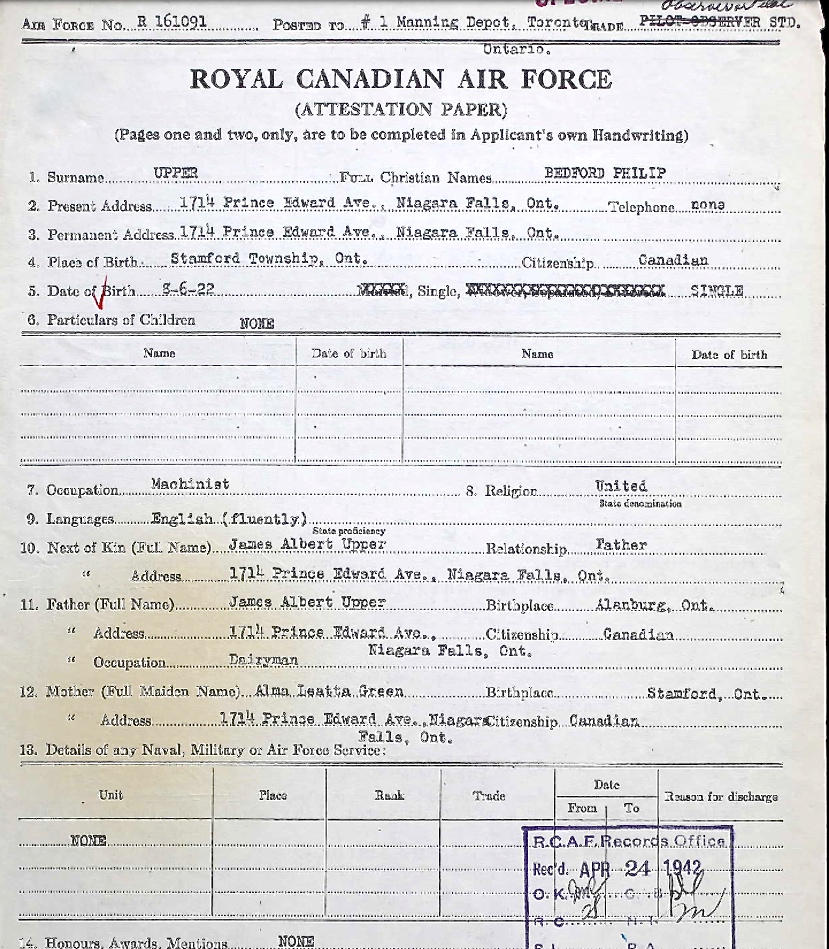 AIR FORCE NO. R 161091 POSTED TO # 1 Manning Depot, Toronto TRADE PILOT OBSERVER STD.
Ontario.
ROYAL CANADIAN AIR FORCE
(ATTESTATION PAPER)
(Pages one and two, only, are to be completed in Applicant's own Handwriting)
1. Surname UPPER FULL Christian Names BEDFORD PHILIP
2. Present Address 1714 Prince Edward Ave., Niagara Falls, Ont. Telephone none
3. Permanent Address 1714 Prince Edward Ave., Niagara Falls, Ont.
4. Place of Birth Stamford Township, Ont. Citizenship Canadian
5. Date of Birth 8-6-22 , Single, SINGLE
6. Particulars of Children NONE
Name Date of birth Name Date of birth
7. Occupation Machinist 8. Religion United
State denomination
9. Languages English (fluently)
State proficiency
10. Next of Kin (Full Name) James Albert Upper Relationship Father
" Address 1714 Prince Edward Ave., Niagara Falls, Ont.
11. Father (Full Name) James Albert Upper Birthplace Alanburg, Ont.
" Address 1714 Prince Edward Ave., Citizenship Canadian
Niagara Falls, Ont.
" Occupation Dairyman
12. Mother (Full Maiden Name) Alma Leatta Green Birthplace Stamford, Ont.
" Address 1714 Prince Edward Ave., Niagara Citizenship Canadian
Falls, Ont.
13. Details of any Naval, Military or Air Force Service:
Unit Place Rank Trade Date Reason for discharge
From To
NONE
R.C.A.F. Records Office
Rec'd. APR 24 1942
O.K.
14. Honours, Awards, Mentions NONE